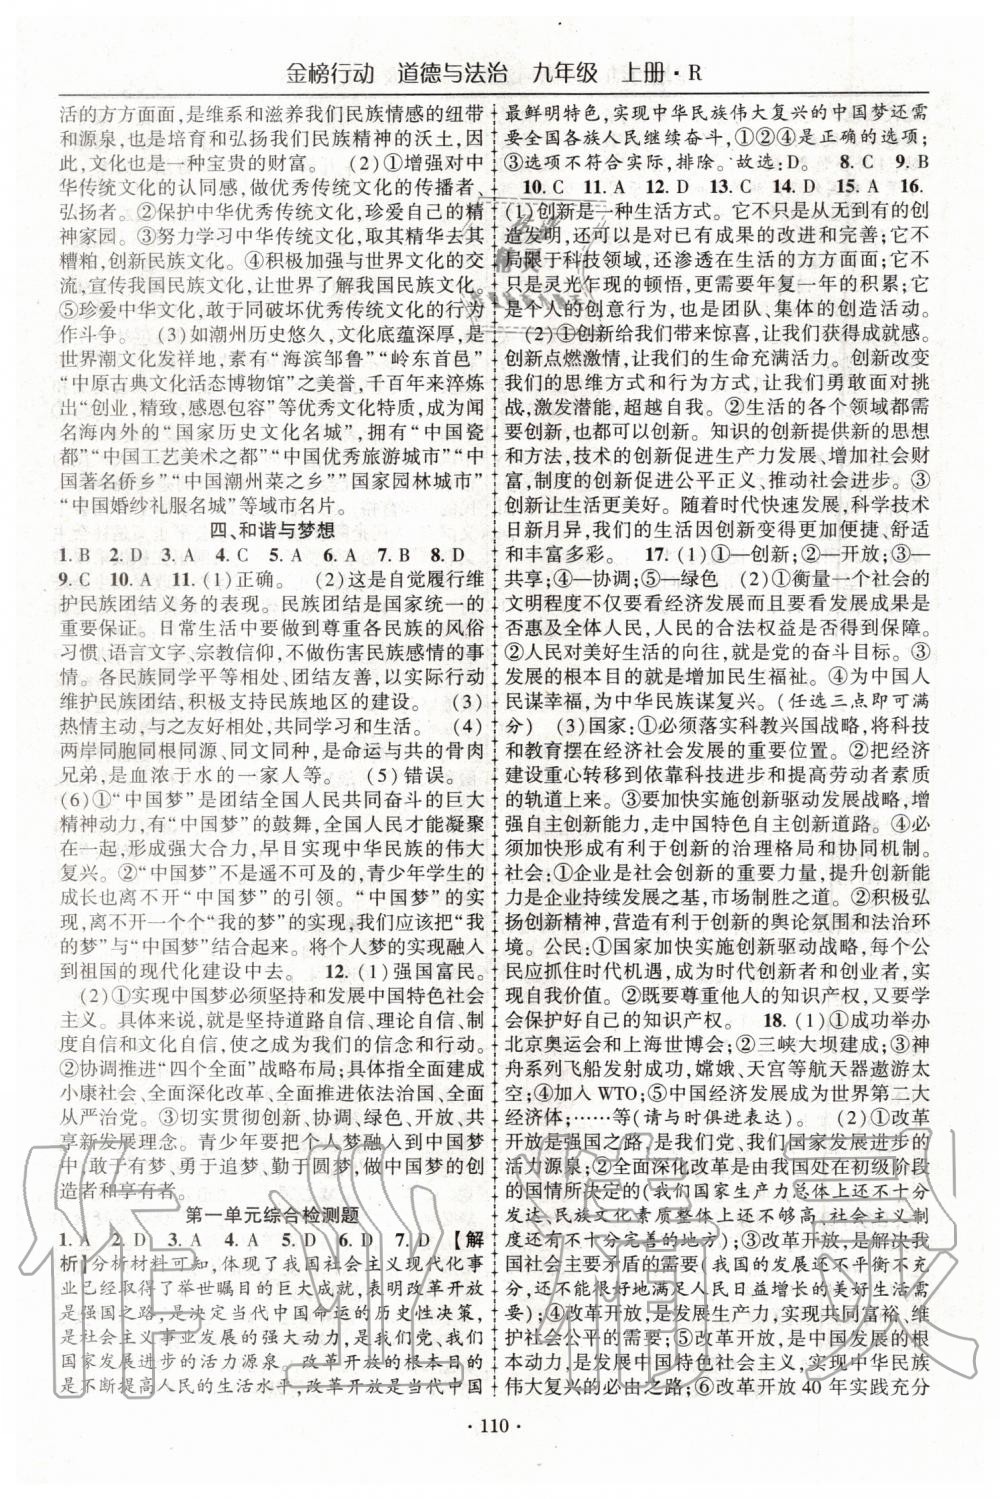 金榜行动 道德与法治 九年级 上册·R
活的方方面面,是维系和滋养我们民族情感的纽带
和源泉,也是培育和弘扬我们民族精神的沃土,因
此,文化也是一种宝贵的财富。 (2)①增强对中
华传统文化的认同感,做优秀传统文化的传播者、
弘扬者。②保护中华优秀传统文化,珍爱自己的精
神家园。③努力学习中华传统文化,取其精华去其
糟粕,创新民族文化。④积极加强与世界文化的交
流,宣传我国民族文化,让世界了解我国民族文化。
⑤珍爱中华文化,敢于同破坏优秀传统文化的行为
作斗争。 (3)如潮州历史悠久,文化底蕴深厚,是
世界潮文化发祥地,素有“海滨邹鲁”“岭东首邑”
“中原古典文化活态博物馆”之美誉,千百年来淬炼
出“创业,精致,感恩包容”等优秀文化特质,成为闻
名海内外的“国家历史文化名城”,拥有“中国瓷
都”“中国工艺美术之都”“中国优秀旅游城市”“中
国著名侨乡”“中国潮州菜之乡”“国家园林城市”
“中国婚纱礼服名城”等城市名片。
四、和谐与梦想
1. B 2. D 3. A 4. C 5. A 6. A 7. B 8. D
9. C 10. A 11. (1)正确。 (2)这是自觉履行维
护民族团结义务的表现。民族团结是国家统一的
重要保证。日常生活中要做到尊重各民族的风俗
习惯、语言文字、宗教信仰,不做伤害民族感情的事
情。各民族同学平等相处、团结友善,以实际行动
维护民族团结,积极支持民族地区的建设。 (3)
热情主动,与之友好相处,共同学习和生活。 (4)
两岸同胞同根同源、同文同种,是命运与共的骨肉
兄弟,是血浓于水的一家人等。 (5)错误。
(6)①“中国梦”是团结全国人民共同奋斗的巨大
精神动力,有“中国梦”的鼓舞,全国人民才能凝聚
在一起,形成强大合力,早日实现中华民族的伟大
复兴。②“中国梦”不是遥不可及的,青少年学生的
成长也离不开“中国梦”的引领。“中国梦”的实
现,离不开一个个“我的梦”的实现,我们应该把“我
的梦”与“中国梦”结合起来。将个人梦的实现融入
到祖国的现代化建设中去。 12. (1)强国富民。
(2)①实现中国梦必须坚持和发展中国特色社会
主义。具体来说,就是坚持道路自信、理论自信、制
度自信和文化自信,使之成为我们的信念和行动。
②协调推进“四个全面”战略布局;具体指全面建成
小康社会、全面深化改革、全面推进依法治国、全面
从严治党。③切实贯彻创新、协调、绿色、开放、共
享新发展理念。青少年要把个人梦融入到中国梦
中,敢于有梦、勇于追梦、勤于圆梦,做中国梦的创
造者和享有者。
第一单元综合检测题
1. A 2. D 3. A 4. A 5. D 6. D 7. D 【解
析】分析材料可知,体现了我国社会主义现代化事
业已经取得了举世瞩目的巨大成就,表明改革开放
是强国之路,是决定当代中国命运的历史性决策,
是社会主义事业发展的强大动力,是我们党、我们
国家发展进步的活力源泉,改革开放的根本目的
是不断提高人民的生活水平,改革开放是当代中国
最鲜明特色,实现中华民族伟大复兴的中国梦还需
要全国各族人民继续奋斗,①②④是正确的选项;
③选项不符合实际,排除。故选:D。 8. C 9. B
10. C 11. A 12. D 13. C 14. D 15. A 16.
(1)创新是一种生活方式。它不只是从无到有的创
造发明,还可以是对已有成果的改进和完善;它不
局限于科技领域,还渗透在生活的方方面面;它不
只是灵光乍现的顿悟,更需要年复一年的积累;它
是个人的创意行为,也是团队、集体的创造活动。
(2)①创新给我们带来惊喜,让我们获得成就感。
创新点燃激情,让我们的生命充满活力。创新改变
我们的思维方式和行为方式,让我们勇敢面对挑
战,激发潜能,超越自我。②生活的各个领域都需
要创新,也都可以创新。知识的创新提供新的思想
和方法,技术的创新促进生产力发展、增加社会财
富,制度的创新促进公平正义、推动社会进步。③
创新让生活更美好。随着时代快速发展,科学技术
日新月异,我们的生活因创新变得更加便捷、舒适
和丰富多彩。 17. (1)①—创新;②—开放;③—
共享;④—协调;⑤—绿色 (2)①衡量一个社会的
文明程度不仅要看经济发展而且要看发展成果是
否惠及全体人民,人民的合法权益是否得到保障。
②人民对美好生活的向往,就是党的奋斗目标。③
发展的根本目的就是增进民生福祉。④为中国人
民谋幸福,为中华民族谋复兴。(任选三点即可满
分) (3)国家:①必须落实科教兴国战略,将科技
和教育摆在经济社会发展的重要位置。②把经济
建设重心转移到依靠科技进步和提高劳动者素质
的轨道上来。③要加快实施创新驱动发展战略,增
强自主创新能力,走中国特色自主创新道路。④必
须加快形成有利于创新的治理格局和协同机制。
社会:①企业是社会创新的重要力量,提升创新能
力是企业持续发展之基、市场制胜之道。②积极弘
扬创新精神,营造有利于创新的舆论氛围和法治环
境。公民:①国家加快实施创新驱动战略,每个公
民应抓住时代机遇,成为时代创新者和创业者,实
现自身价值。②既要尊重他人的知识产权,又要学
会保护好自己的知识产权。 18. (1)①成功举办
北京奥运会和上海世博会;②三峡大坝建成;③神
舟系列飞船发射成功,嫦娥、天宫等航天器遨游太
空;④加入 WTO;⑤中国经济发展成为世界第二大
经济体;……等(请与时俱进表达)。 (2)①改革
开放是强国之路,是我们党、我们国家发展进步的
活力源泉;②全面深化改革是由我国处在初级阶段
的国情所决定的(我国国家生产力总体上还不十分
发达、民族文化素质整体上还不十分高、社会主义制度
还不十分完善的地方);③改革开放,是解决我
国社会主要矛盾的需要(我国的发展还不平衡不充
分,还不能充分满足人民日益增长的美好生活的需
要);④改革开放,是发展生产力,实现共同富裕、维
护社会公平的需要;⑤改革开放,是中国发展的根
本动力,是中国特色社会主义,实现中华民族
伟大复兴的必由之路;⑥改革开放 40 年实践充分
·110·
作业精灵